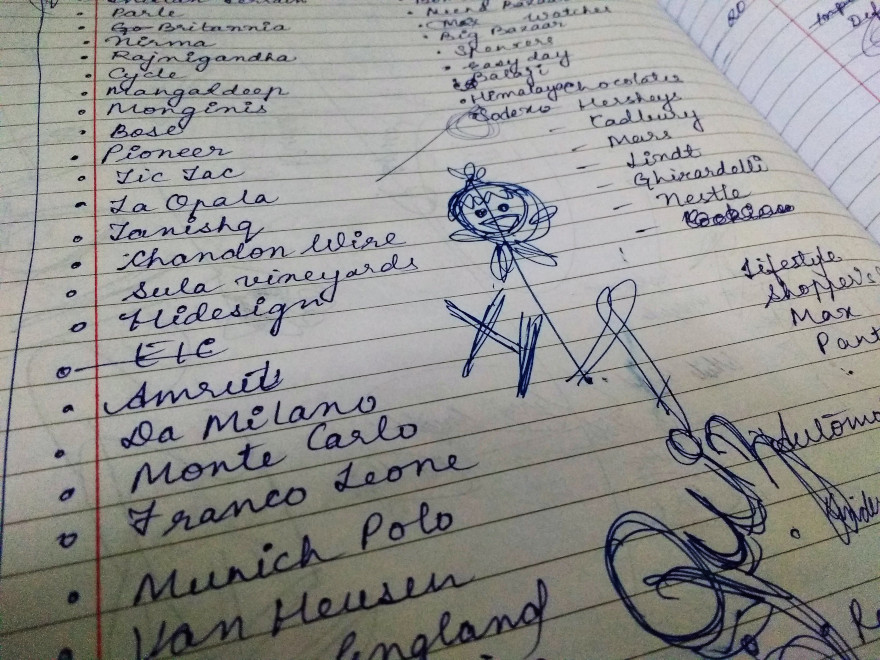 Parle
Go Britannia
Nirma
Rajnigandha
Cycle
Mangaldeep
Monginis
Bose
Pioneer
Tic Tac
La Opala
Tanishq
Chandon Wire
Sula vineyards
Hidesign
EIE
Amrut
Da Milano
Monte Carlo
Franco Leone
Munich Polo
Van Heusen
England
Max Watches
Big Bazaar
Spencers
Easy day
Balaji
Himalaya Chocolates
Sodexo Hersheys
Kadbury
Mars
Lindt
Ghirardelli
Nestle
Lifestyle
Shopper's
Max
Pant